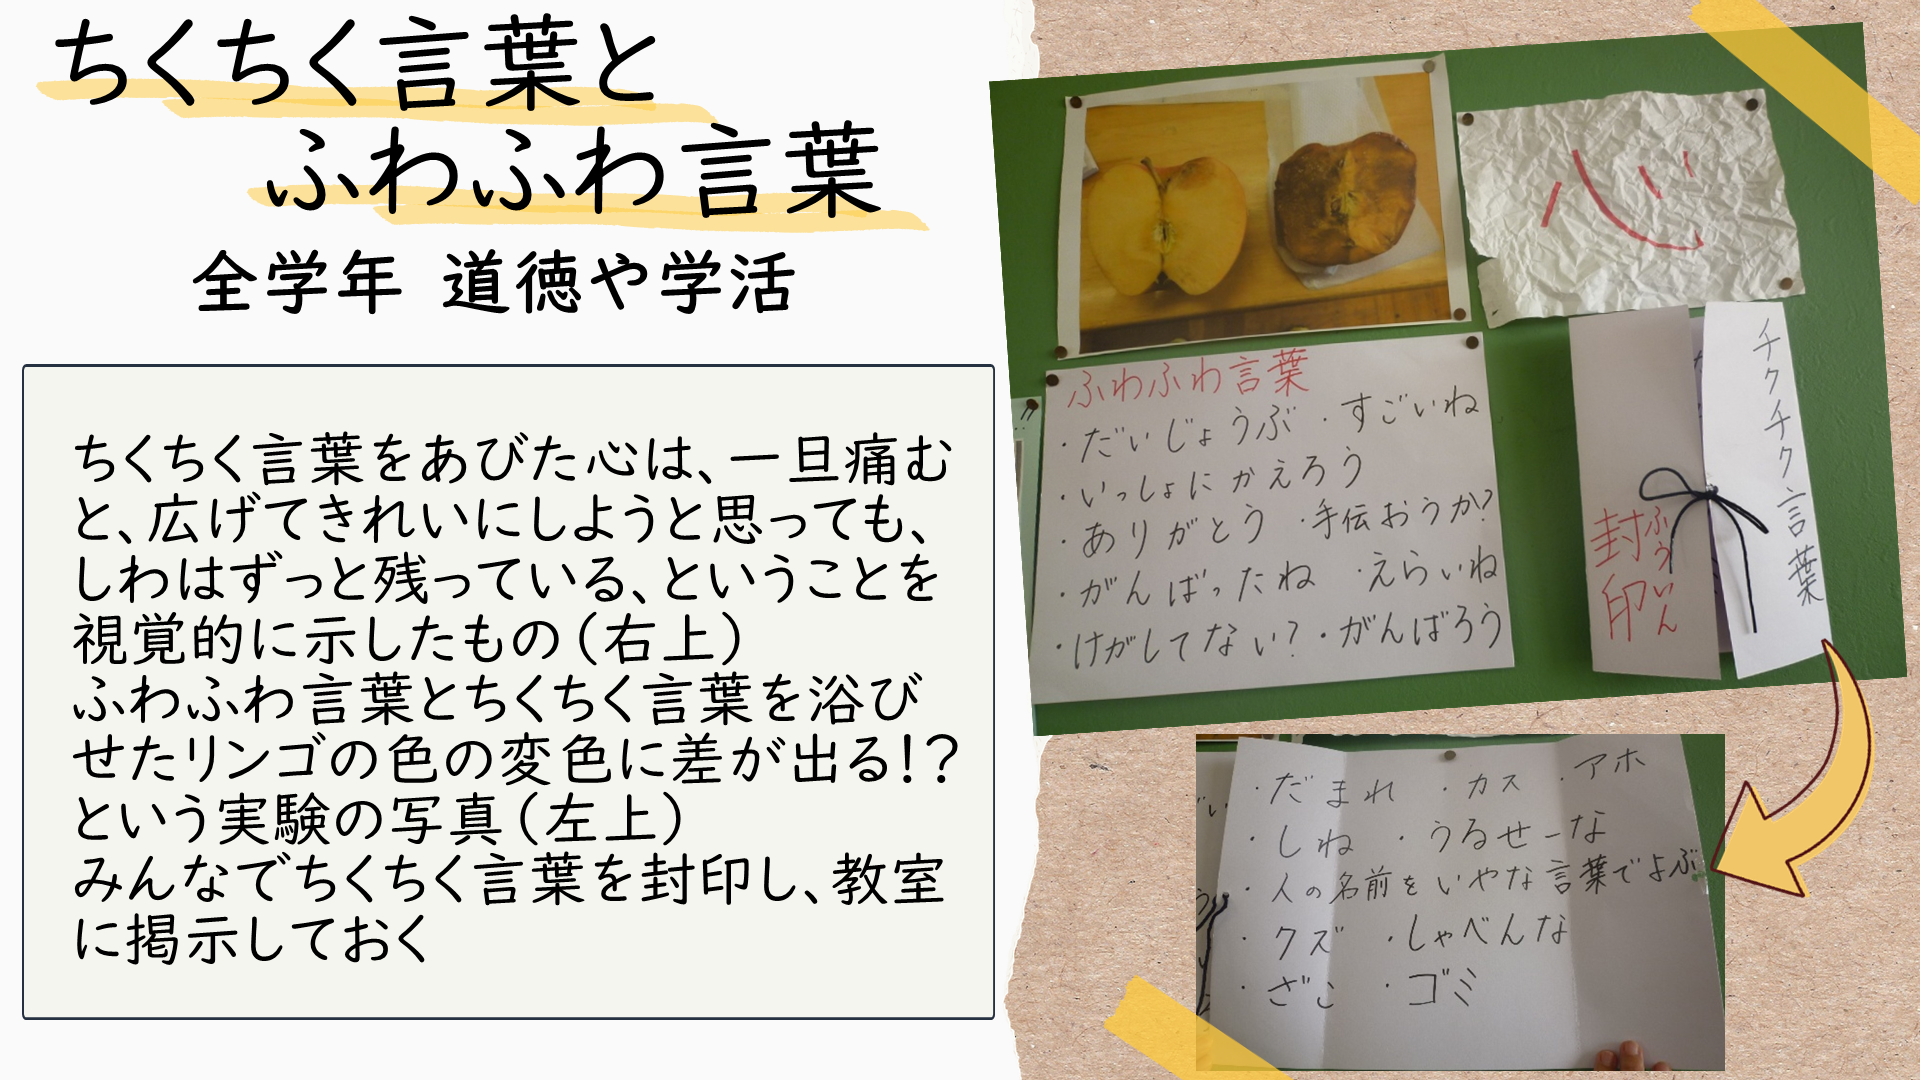 ちくちく言葉と
ふわふわ言葉
全学年 道徳や学活
ちくちく言葉をあびた心は、一旦痛む
と、広げてきれいにしようと思っても、
しわはずっと残っている、ということを
視覚的に示したもの(右上)
ふわふわ言葉とちくちく言葉を浴び
せたリンゴの色の変色に差が出る!?
という実験の写真(左上)
みんなでちくちく言葉を封印し、教室
に掲示しておく
心
ふわふわ言葉
・だいじょうぶ ・すごいね
・いっしょにかえろう
・ありがとう ・手伝おうか?
・がんばったね ・えらいね
・けがしてない? ・がんばろう
チクチク言葉
ふういん
封印
・だまれ ・カス ・アホ
・しね ・うるせーな
・人の名前をいやな言葉でよぶ
・クズ ・しゃべんな
・ざこ ・ゴミ